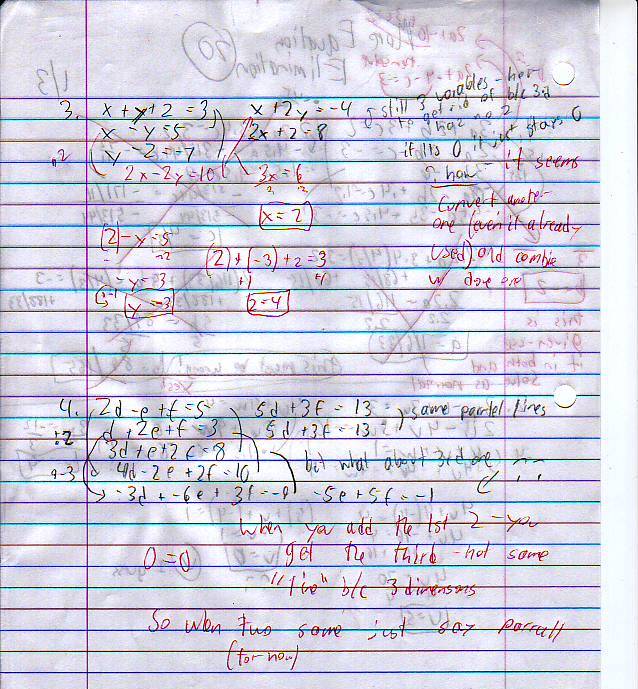 3. x + y + z = 3   x + 2y = -4
x - y = 5   2x + z = 8
y - z = -7
2x - 2y = 10   3x = 6
x = 2
still 3 variables - how
to get rid of b/c 3rd
has no z
if its 0 it just stays 0
? how - it seems
Convert another
one (even if already
used) and combie
w/ done one
(2) - y = 5
-2   -2
(2) + (-3) + z = 3
-y = 3   +1   +1
y = -3   z = 4
4. 2d - e + f = 5   5d + 3f = 13   same parrtel lines
d + 2e + f = 3   5d + 3f = 13
3d + e + 2f = 8
4d - 2e + 2f = 10   but what about 3rd one
-3d + -6e + 3f = -9   -5e + 5f = -1
When you add the 1st 2 - you
0 = 0   get the third - not same
"line" b/c 3 dimensons
So when two same just say parrell
(for now)